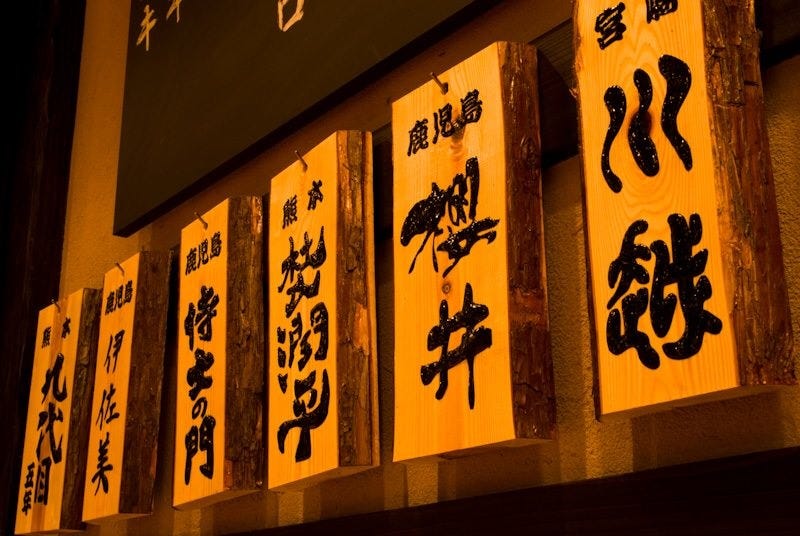 宮崎
川越
鹿児島
櫻井
熊本
杜潤平
鹿児島
侍士の門
鹿児島
伊佐美
熊本
九代目
五年